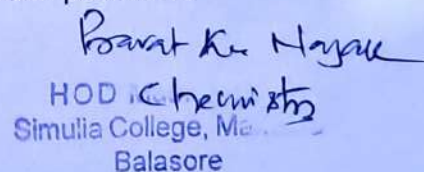 Barat Ku Nayak
HOD Chemistry
Simulia College,
Balasore